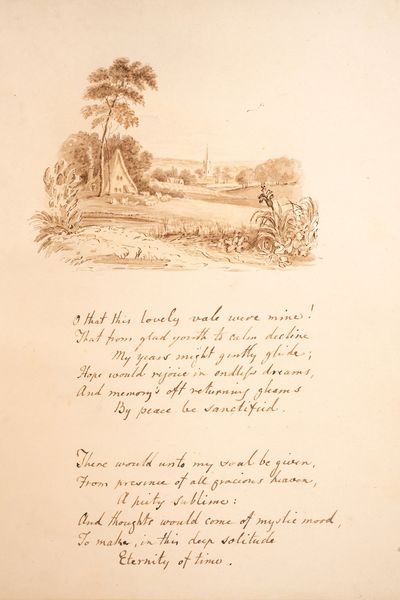 O that this lovely vale were mine!
That from glad youth to calm decline
My years might gently glide;
Hope would rejoice in endless dreams,
And memory's oft returning gleams
By peace be sanctified.
There would unto my soul be given,
From presence of all gracious heaven,
A piety sublime:
And thoughts would come of mystic mood,
To make, in this deep solitude
Eternity of time.